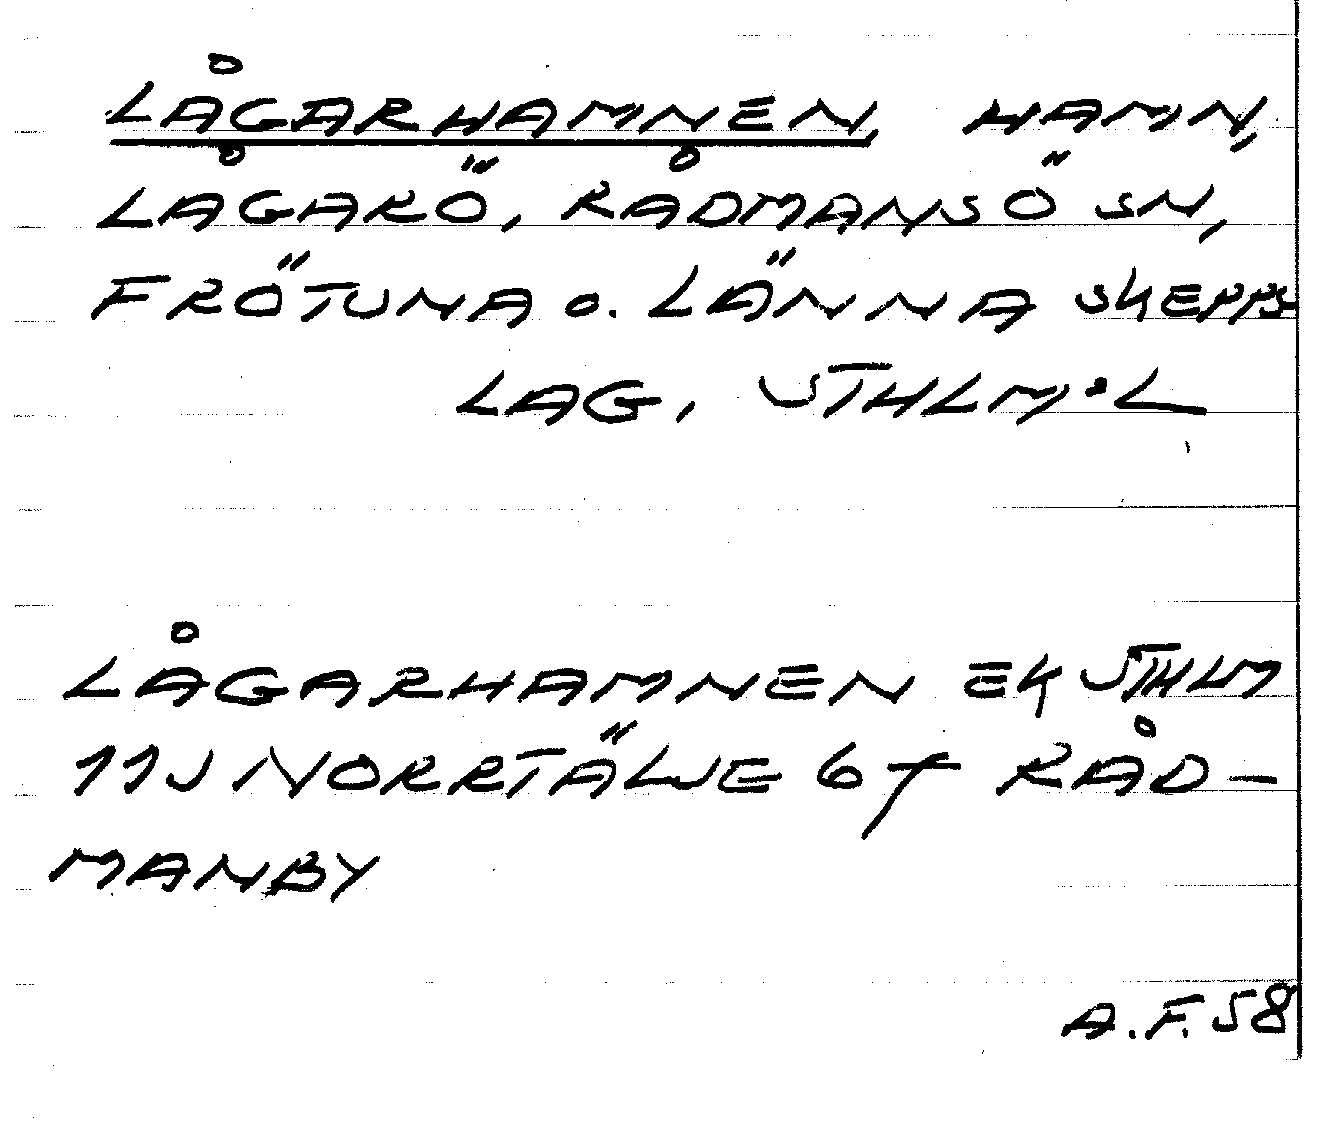 LÅGARHAMNEN, HAMN,
LÅGARÖ, RÅDMANSÖ SN,
FRÖTUNA O. LÄNNA SKEPPS
LAG, STHLM:L
LÅGARHAMNEN EK STHLM
11J NORRTÄLJE 6f RÅD-
MANBY
A.F. 58